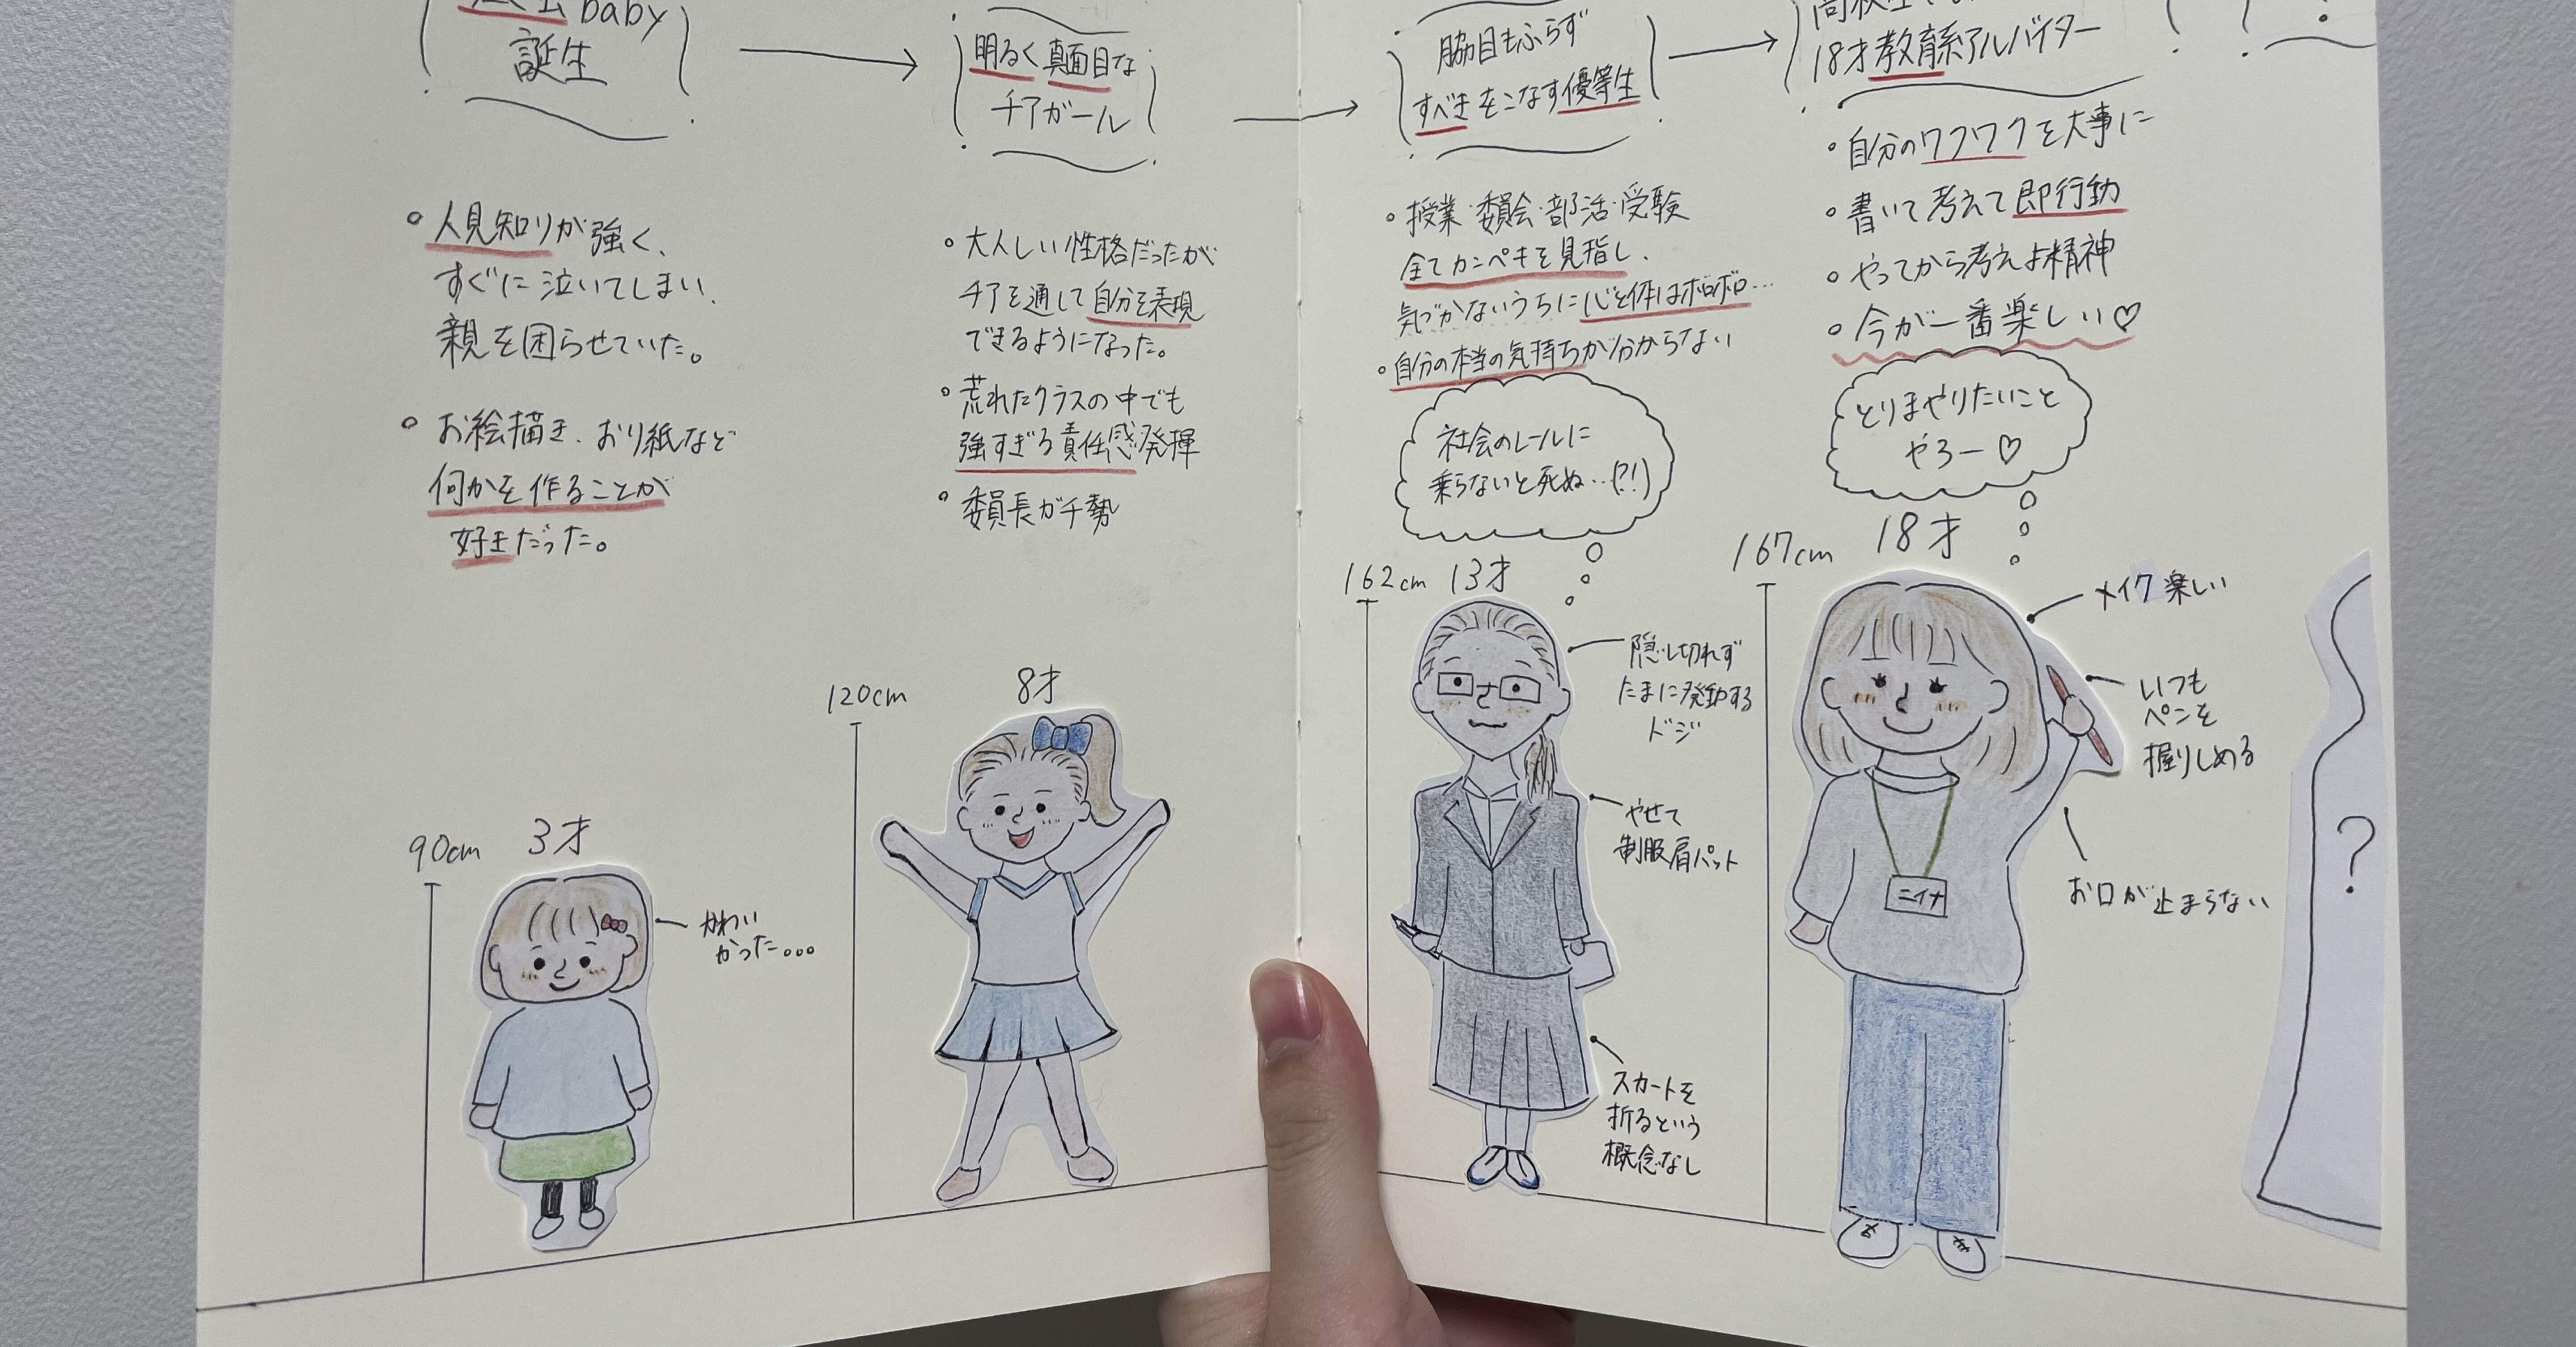 baby
誕生
明るく真面目な
チアガール
脇目もふらず
すべきをこなす優等生
18才教育系アルバイター
・人見知りが強く、
すぐに泣いてしまい、
親を困らせていた。
・お絵描き、おり紙など
何かを作ることが
好きだった。
・大人しい性格だったが
チアを通して自分を表現
できるようになった。
・荒れたクラスの中でも
強すぎる責任感発揮
・委員長ガチ勢
・授業・委員会・部活・受験
全てカンペキを見指し、
気づかないうちに心と体はボロボロ…
・自分の本当の気持ちが分からない
社会のレールに
乗らないと死ぬ…(?!)
・自分のワクワクを大事に
・書いて考えて即行動
・やってから考えよ精神
・今が一番楽しい♡
とりまやりたいこと
やろー♡
90cm 3才
かわい
かった…
120cm 8才
162cm 13才
隠し切れず
たまに発動する
ドジ
やせて
制服肩パット
スカートを
折るという
概念なし
167cm 18才
メイク楽しい
いつも
ペンを
握りしめる
お口が止まらない
ニイナ
?